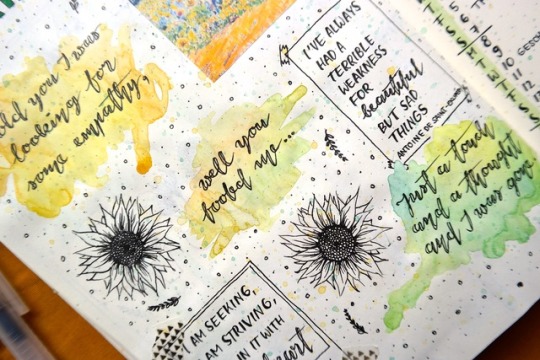 you I was
looking for
some empathy,
well you
fooled me...
I'VE ALWAYS
HAD A
TERRIBLE
WEAKNESS
FOR
beautiful
BUT SAD
THINGS
ANTOINE DE
Just a touch
and a thought
and I was gone
I AM SEEKING,
AM STRIVING,
IN IT WITH